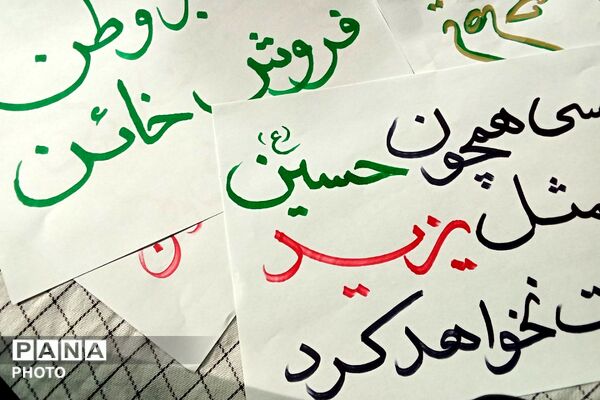 وطن
فروش
خائن
همچون
حسین (ع)
یزید
نخواهد کرد
PANA
PHOTO